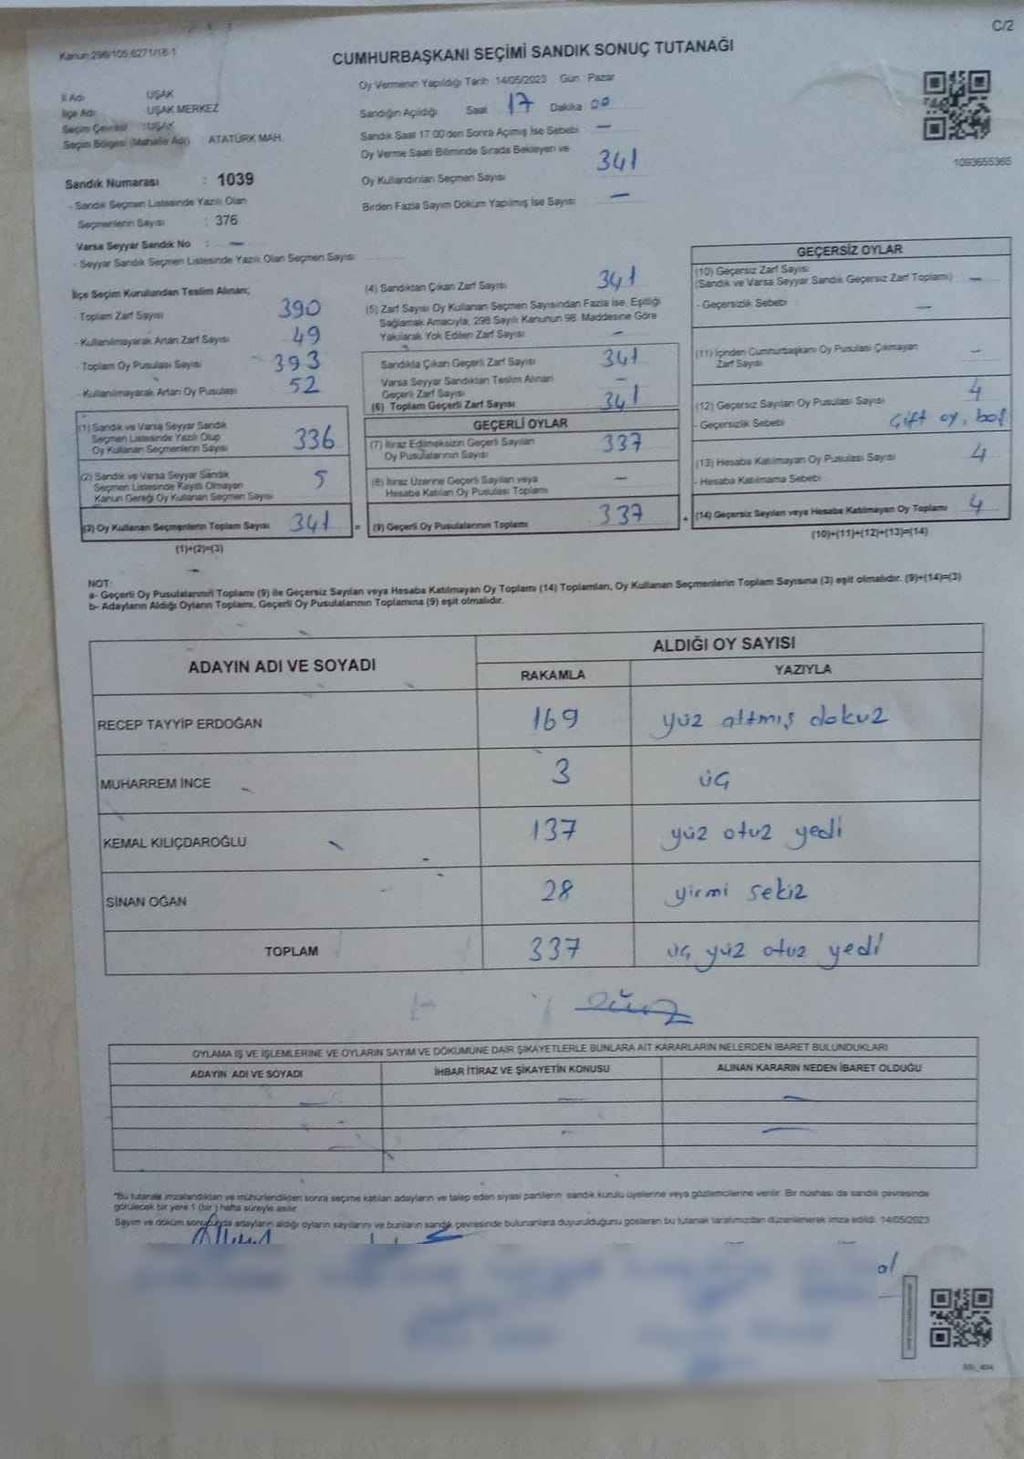 C/2
Kanun:298/105:6271/18-1
CUMHURBAŞKANI SEÇİMİ SANDIK SONUÇ TUTANAĞI
Oy Vermenin Yapıldığı Tarih 14/05/2023 Gün : Pazar
İl Adı UŞAK
İlçe Adı UŞAK MERKEZ
Seçim Çevresi : UŞAK
Seçim Bölgesi (Mahalle Adı) ATATÜRK MAH.
Sandığın Açıldığı Saat 17 Dakika 00
Sandık Saat 17:00'den Sonra Açılmış İse Sebebi —
Oy Verme Saati Bitiminde Sırada Bekleyen ve
Oy Kullandırılan Seçmen Sayısı 341
Birden Fazla Sayım Döküm Yapılmış İse Sayısı —
1093655365
Sandık Numarası : 1039
- Sandık Seçmen Listesinde Yazılı Olan
Seçmenlerin Sayısı : 376
Varsa Seyyar Sandık No : —
- Seyyar Sandık Seçmen Listesinde Yazılı Olan Seçmen Sayısı
İlçe Seçim Kurulundan Teslim Alınan;
- Toplam Zarf Sayısı 390
- Kullanılmayarak Artan Zarf Sayısı 49
- Toplam Oy Pusulası Sayısı 393
- Kullanılmayarak Artan Oy Pusulası 52
(1) Sandık ve Varsa Seyyar Sandık
Seçmen Listesinde Yazılı Olup
Oy Kullanan Seçmenlerin Sayısı 336
(2) Sandık ve Varsa Seyyar Sandık
Seçmen Listesinde Kayıtlı Olmayan
Kanun Gereği Oy Kullanan Seçmen Sayısı 5
(3) Oy Kullanan Seçmenlerin Toplam Sayısı 341 =
(1)+(2)=(3)
(4) Sandıktan Çıkan Zarf Sayısı 341
(5) Zarf Sayısı Oy Kullanan Seçmen Sayısından Fazla ise, Eşitliği
Sağlamak Amacıyla, 298 Sayılı Kanunun 98. Maddesine Göre
Yakılarak Yok Edilen Zarf Sayısı —
Sandıkta Çıkan Geçerli Zarf Sayısı 341
Varsa Seyyar Sandıktan Teslim Alınan
Geçerli Zarf Sayısı —
(6) Toplam Geçerli Zarf Sayısı 341
GEÇERLİ OYLAR
(7) İtiraz Edilmeksizin Geçerli Sayılan
Oy Pusulalarının Sayısı 337
(8) İtiraz Üzerine Geçerli Sayılan veya
Hesaba Katılan Oy Pusulası Toplamı —
(9) Geçerli Oy Pusulalarının Toplamı 337 +
GEÇERSİZ OYLAR
(10) Geçersiz Zarf Sayısı
(Sandık ve Varsa Seyyar Sandık Geçersiz Zarf Toplamı) —
- Geçersizlik Sebebi —
(11) İçinden Cumhurbaşkanı Oy Pusulası Çıkmayan
Zarf Sayısı —
(12) Geçersiz Sayılan Oy Pusulası Sayısı 4
- Geçersizlik Sebebi Çift oy, boş
(13) Hesaba Katılmayan Oy Pusulası Sayısı 4
- Hesaba Katılmama Sebebi
(14) Geçersiz Sayılan veya Hesaba Katılmayan Oy Toplamı 4
(10)+(11)+(12)+(13)=(14)
NOT:
a- Geçerli Oy Pusulalarının Toplamı (9) ile Geçersiz Sayılan veya Hesaba Katılmayan Oy Toplamı (14) Toplamları, Oy Kullanan Seçmenlerin Toplam Sayısına (3) eşit olmalıdır. (9)+(14)=(3)
b- Adayların Aldığı Oyların Toplamı, Geçerli Oy Pusulalarının Toplamına (9) eşit olmalıdır.
ADAYIN ADI VE SOYADI
ALDIĞI OY SAYISI
RAKAMLA YAZIYLA
RECEP TAYYİP ERDOĞAN 169 yüz altmış dokuz
MUHARREM İNCE 3 üç
KEMAL KILIÇDAROĞLU 137 yüz otuz yedi
SİNAN OĞAN 28 yirmi sekiz
TOPLAM 337 üç yüz otuz yedi
OYLAMA İŞ VE İŞLEMLERİNE VE OYLARIN SAYIM VE DÖKÜMÜNE DAİR ŞİKAYETLERLE BUNLARA AİT KARARLARIN NELERDEN İBARET BULUNDUKLARI
ADAYIN ADI VE SOYADI İHBAR İTİRAZ VE ŞİKAYETİN KONUSU ALINAN KARARIN NEDEN İBARET OLDUĞU
*Bu tutanak imzalandıktan ve mühürlendikten sonra seçime katılan adayların ve talep eden siyasi partilerin sandık kurulu üyelerine veya gözlemcilerine verilir. Bir nüshası da sandık çevresinde
görülecek bir yere 1 (bir) hafta süreyle asılır.
Sayım ve döküm sonucunda adayların aldığı oyların sayılarını ve bunların sandık çevresinde bulunanlara duyurulduğunu gösteren bu tutanak tarafımızdan düzenlenerek imza edildi. 14/05/2023